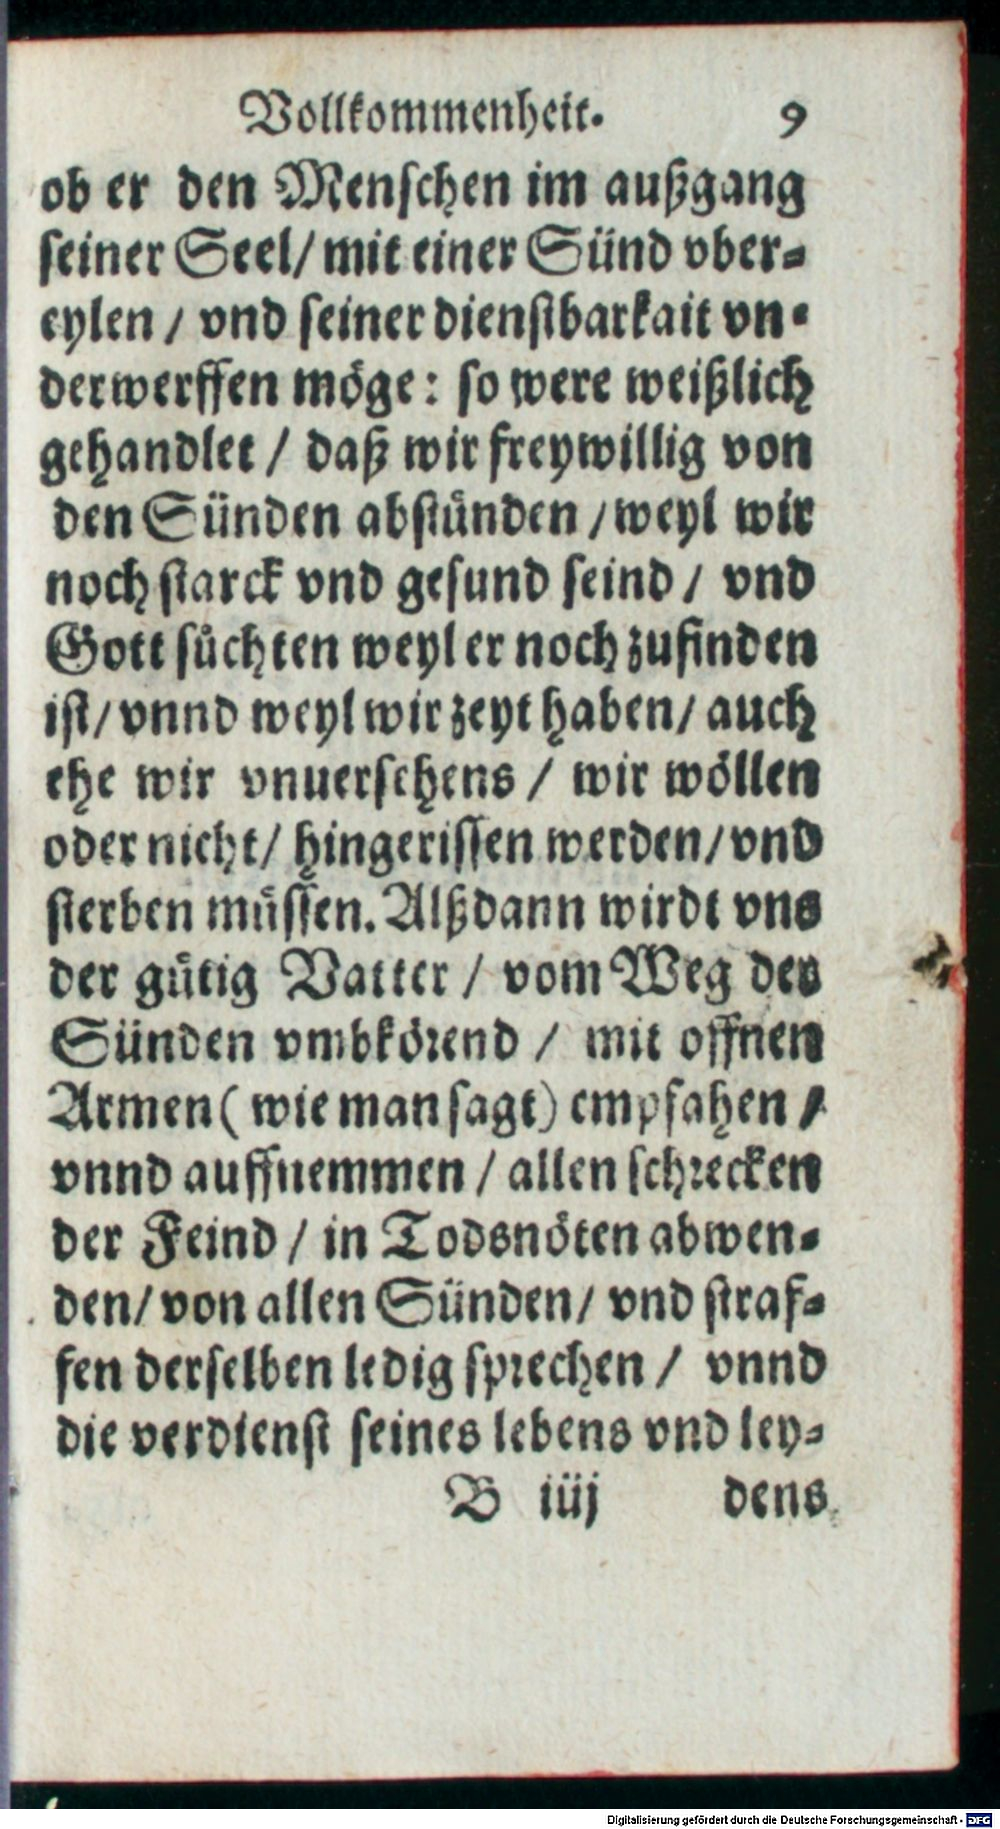 Vollkommenheit. 9
ob er den Menschen im außgang
seiner Seel/ mit einer Sünd vber-
eylen / vnd seiner dienstbarkait vn-
derwerffen möge: so were weißlich
gehandlet / daß wir freywillig von
den Sünden abstünden / weyl wir
noch starck vnd gesund seind / vnd
Gott süchten weyl er noch zufinden
ist/ vnnd weyl wir zeyt haben/ auch
ehe wir vnuersehens / wir wöllen
oder nicht/ hingerissen werden/ vnd
sterben müssen. Alßdann wirdt vns
der gütig Vatter / vom Weg der
Sünden vmbkörend / mit offnen
Armen ( wie man sagt) empfahen /
vnnd auffnemmen / allen schrecken
der Feind / in Todsnöten abwen-
den/ von allen Sünden/ vnd straf-
fen derselben ledig sprechen / vnnd
die verdienst seines lebens vnd ley-
B iiij dens
Digitalisierung gefördert durch die Deutsche Forschungsgemeinschaft - DFG